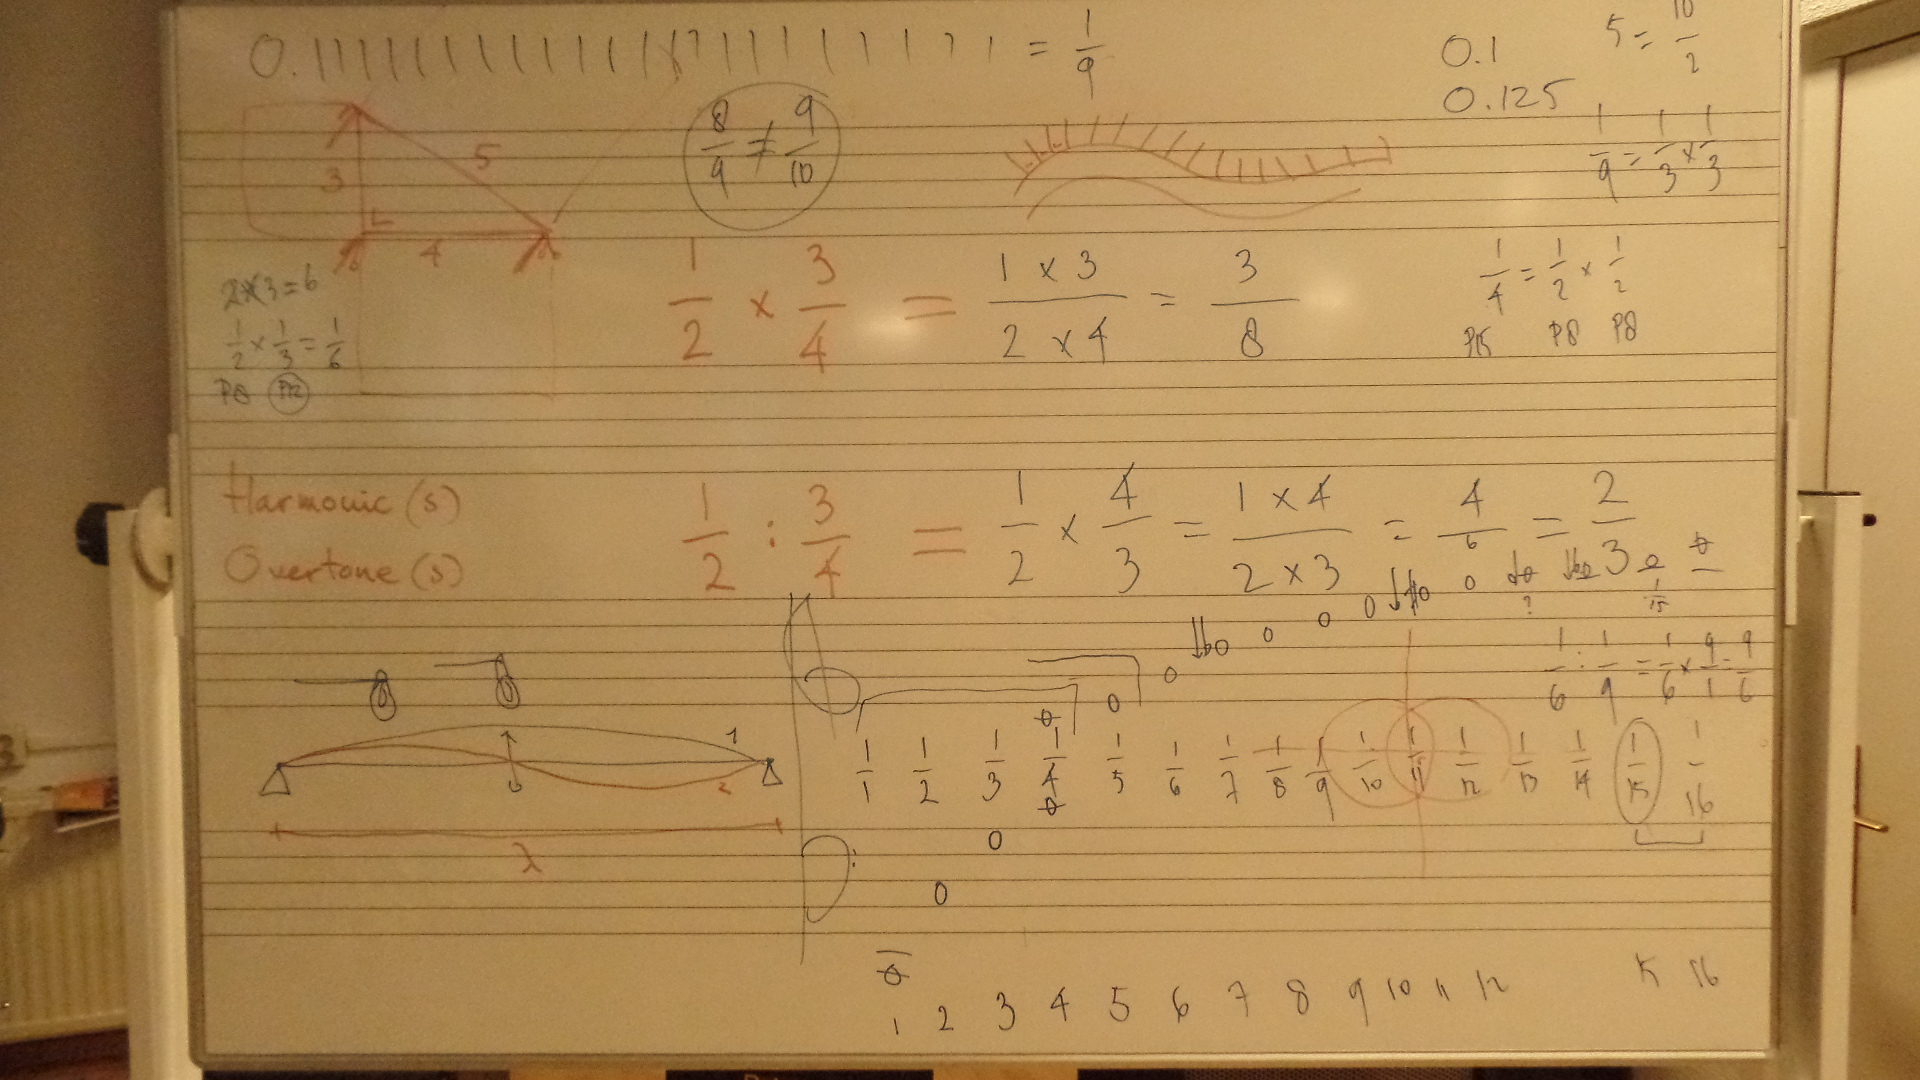 0.1111111111111111111111 = 1/9
0.1
0.125
5 = 10/2
8/9 ≠ 9/10
1/9 = 1/3 × 1/3
3
5
4
2×3=6
1/2 × 1/3 = 1/6
P8 P12
1/2 × 3/4 = 1 × 3 / 2 × 4 = 3/8
1/4 = 1/2 × 1/2
P15 P8 P8
Harmonic (s)
Overtone (s)
1/2 : 3/4 = 1/2 × 4/3 = 1 × 4 / 2 × 3 = 4/6 = 2/3
?
1/15
1/6 : 1/9 = 1/6 × 9/1 = 9/6
1
2
λ
1/1 1/2 1/3 1/4 1/5 1/6 1/7 1/8 1/9 1/10 1/11 1/12 1/13 1/14 1/15 1/16
1 2 3 4 5 6 7 8 9 10 11 12 15 16